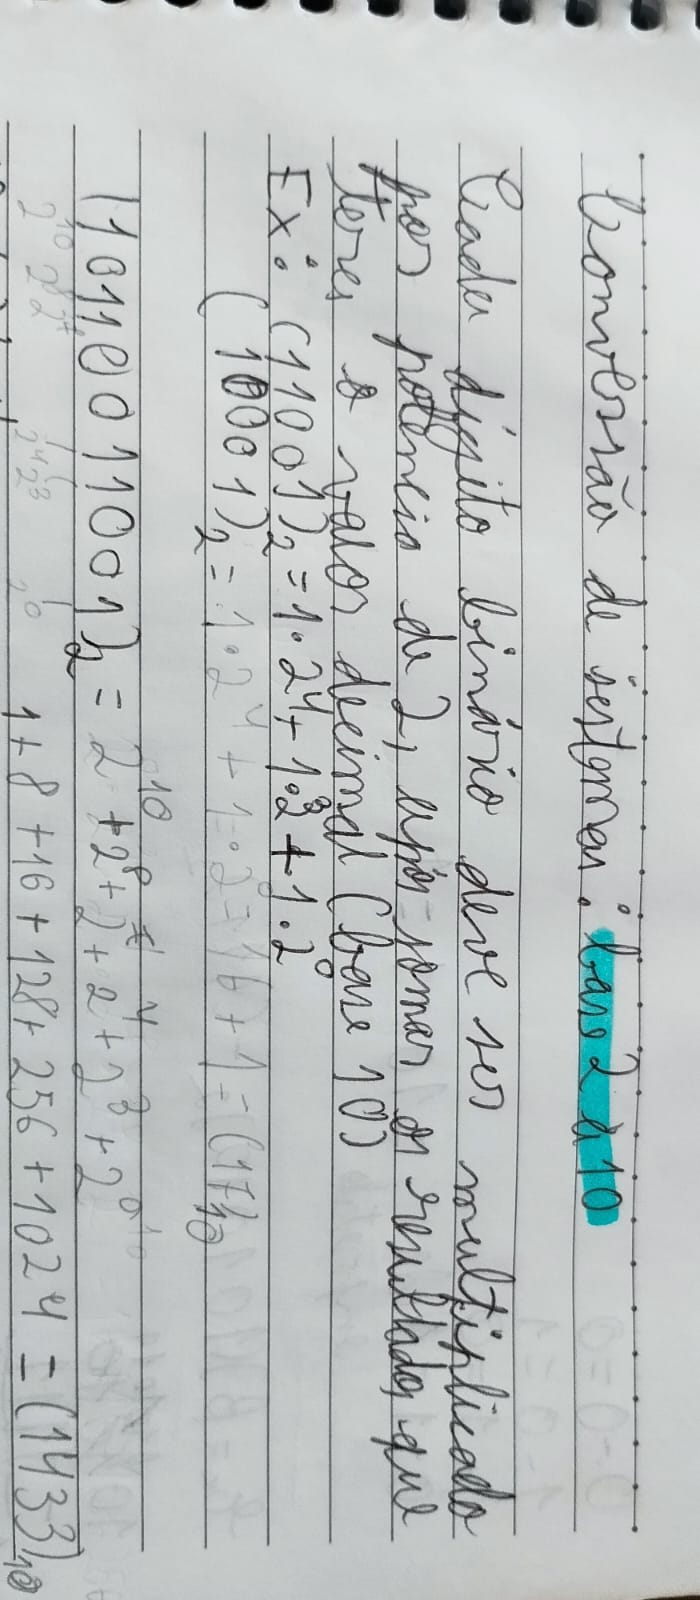 Conversão de sistemas: base 2 à 10
Cada dígito binário deve ser multiplicado
por potência de 2, após somar os resultados que
teres o valor decimal (base 10)
Ex: (11001)₂ = 1·2⁴ + 1·2³ + 1·2⁰
(10001)₂ = 1·2⁴ + 1·2 = 16 + 1 = (17)₁₀
(10110011001)₂ = 2¹⁰ + 2⁸ + 2⁷ + 2⁴ + 2³ + 2⁰
2¹⁰ 2⁸ 2⁷ 2⁴ 2³ 2⁰
1 + 8 + 16 + 128 + 256 + 1024 = (1433)₁₀